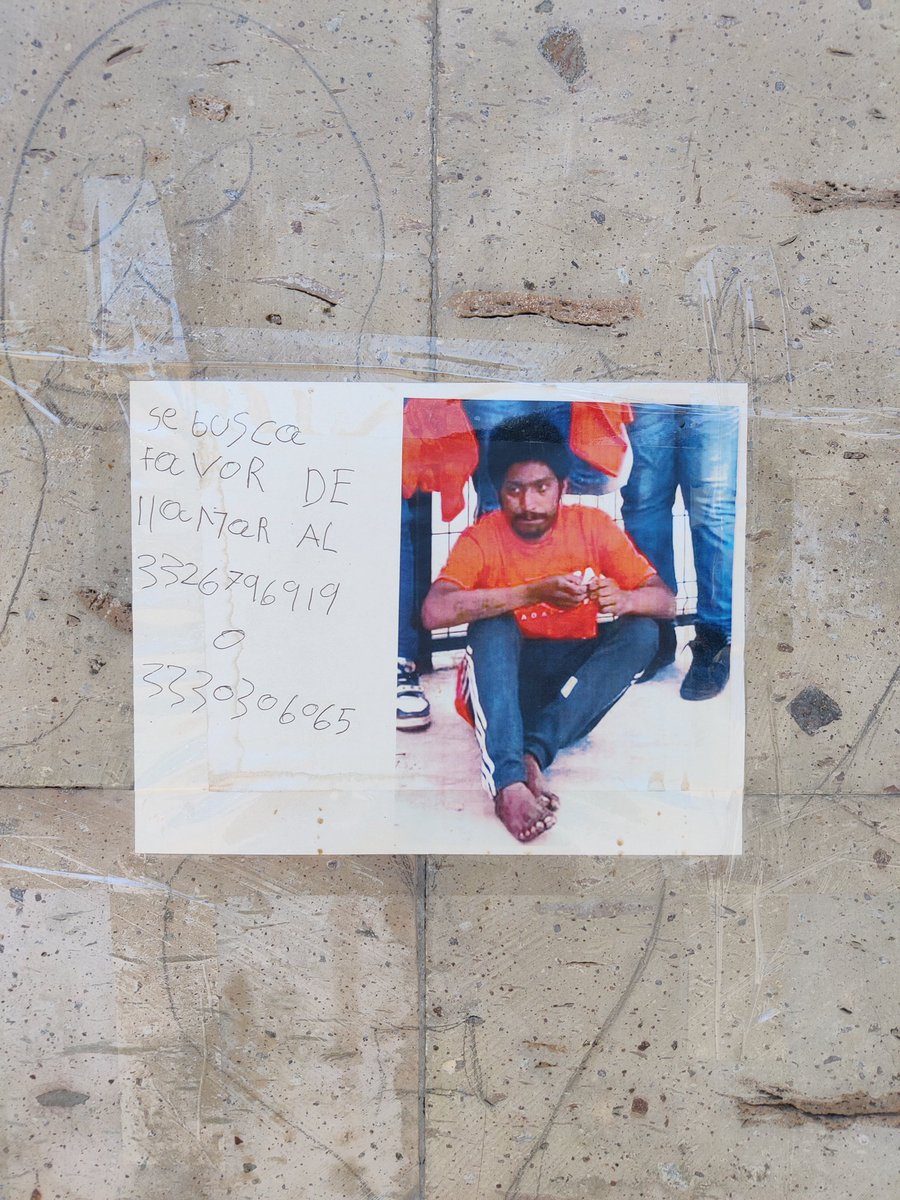 se busca
favor DE
llamar AL
3326796919
o
3330306065